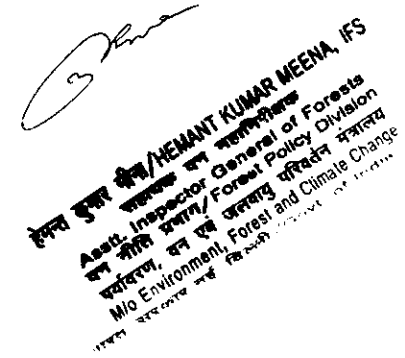 हेमन्त कुमार मीना/HEMANT KUMAR MEENA, IFS
सहायक वन महानिरीक्षक
Asstt. Inspector General of Forests
वन नीति प्रभाग/ Forest Policy Division
पर्यावरण, वन एवं जलवायु परिवर्तन मंत्रालय
M/o Environment, Forest and Climate Change